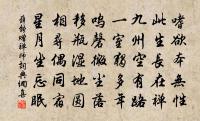 嗜欲本無性
此生長在禪
九州空有路
一室獨多年
鳴磬微塵落
移瓶濕地圓
相尋偶同宿
星月坐忘眠
薛能贈禪師詞典網喜